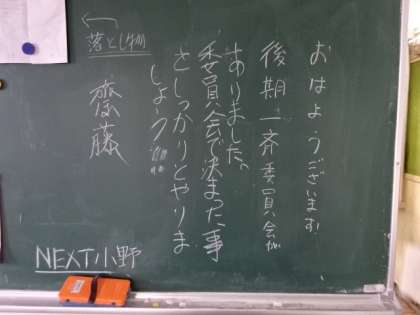 おはようございます
後期一斉委員会が
ありました。
委員会で決まった事
をしっかりとやりま
しょう!!
齋藤
落とし物
NEXT小野